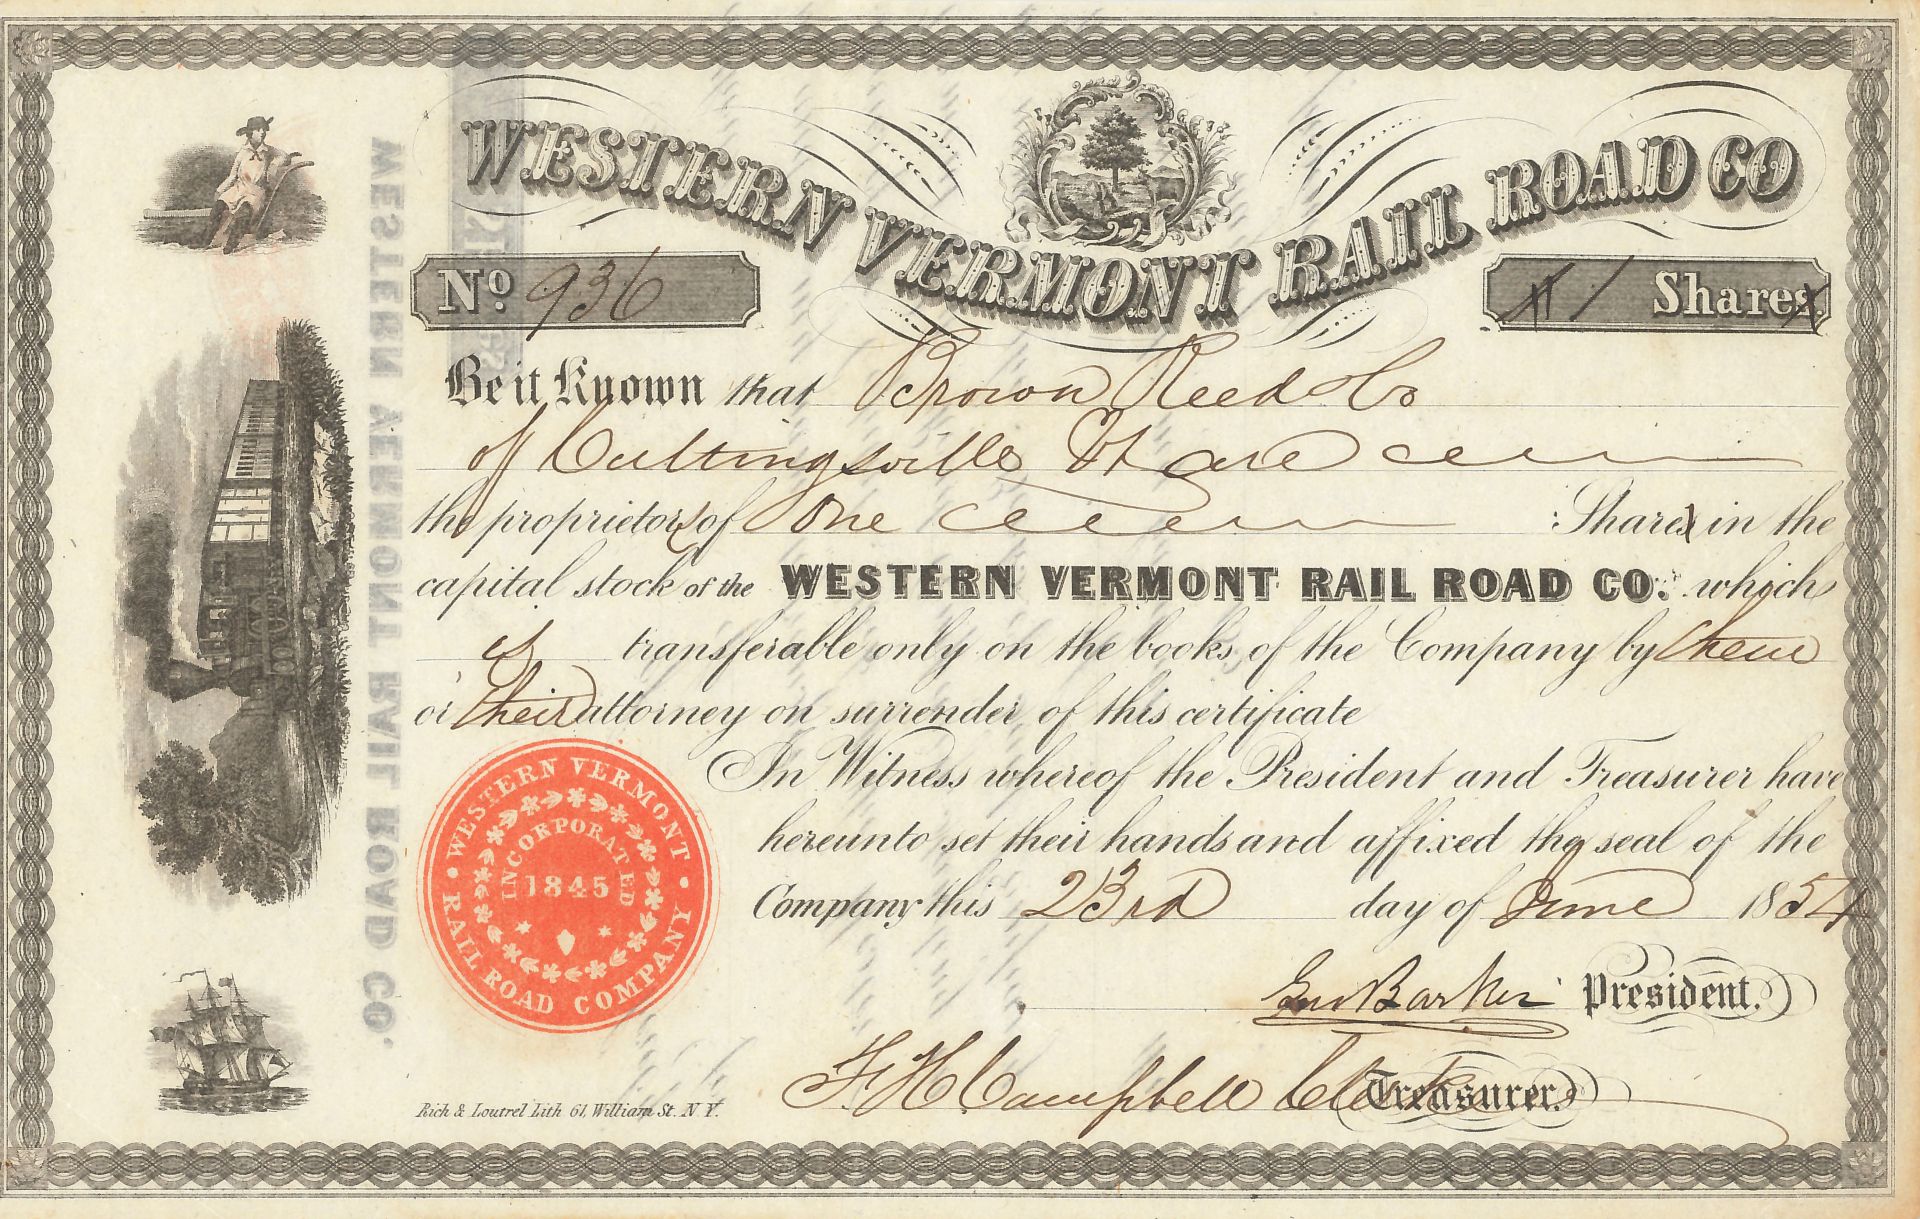 WESTERN VERMONT RAIL ROAD CO
No. 936
1 Shares
Be it Known that Brown Reed & Co
of Cuttingsville Vt are
the proprietors of One Shares in the
capital stock of the WESTERN VERMONT RAIL ROAD CO. which
is transferable only on the books of the Company by them
or their attorney on surrender of this certificate
In Witness whereof the President and Treasurer have
hereunto set their hands and affixed the seal of the
Company this 23rd day of June 1854
Geo Barker President.
F H Campbell Clerk Treasurer.
WESTERN VERMONT RAIL ROAD COMPANY
INCORPORATED
1845
Rich & Loutrel Lith 61, William St. N Y.
WESTERN VERMONT RAIL ROAD CO.